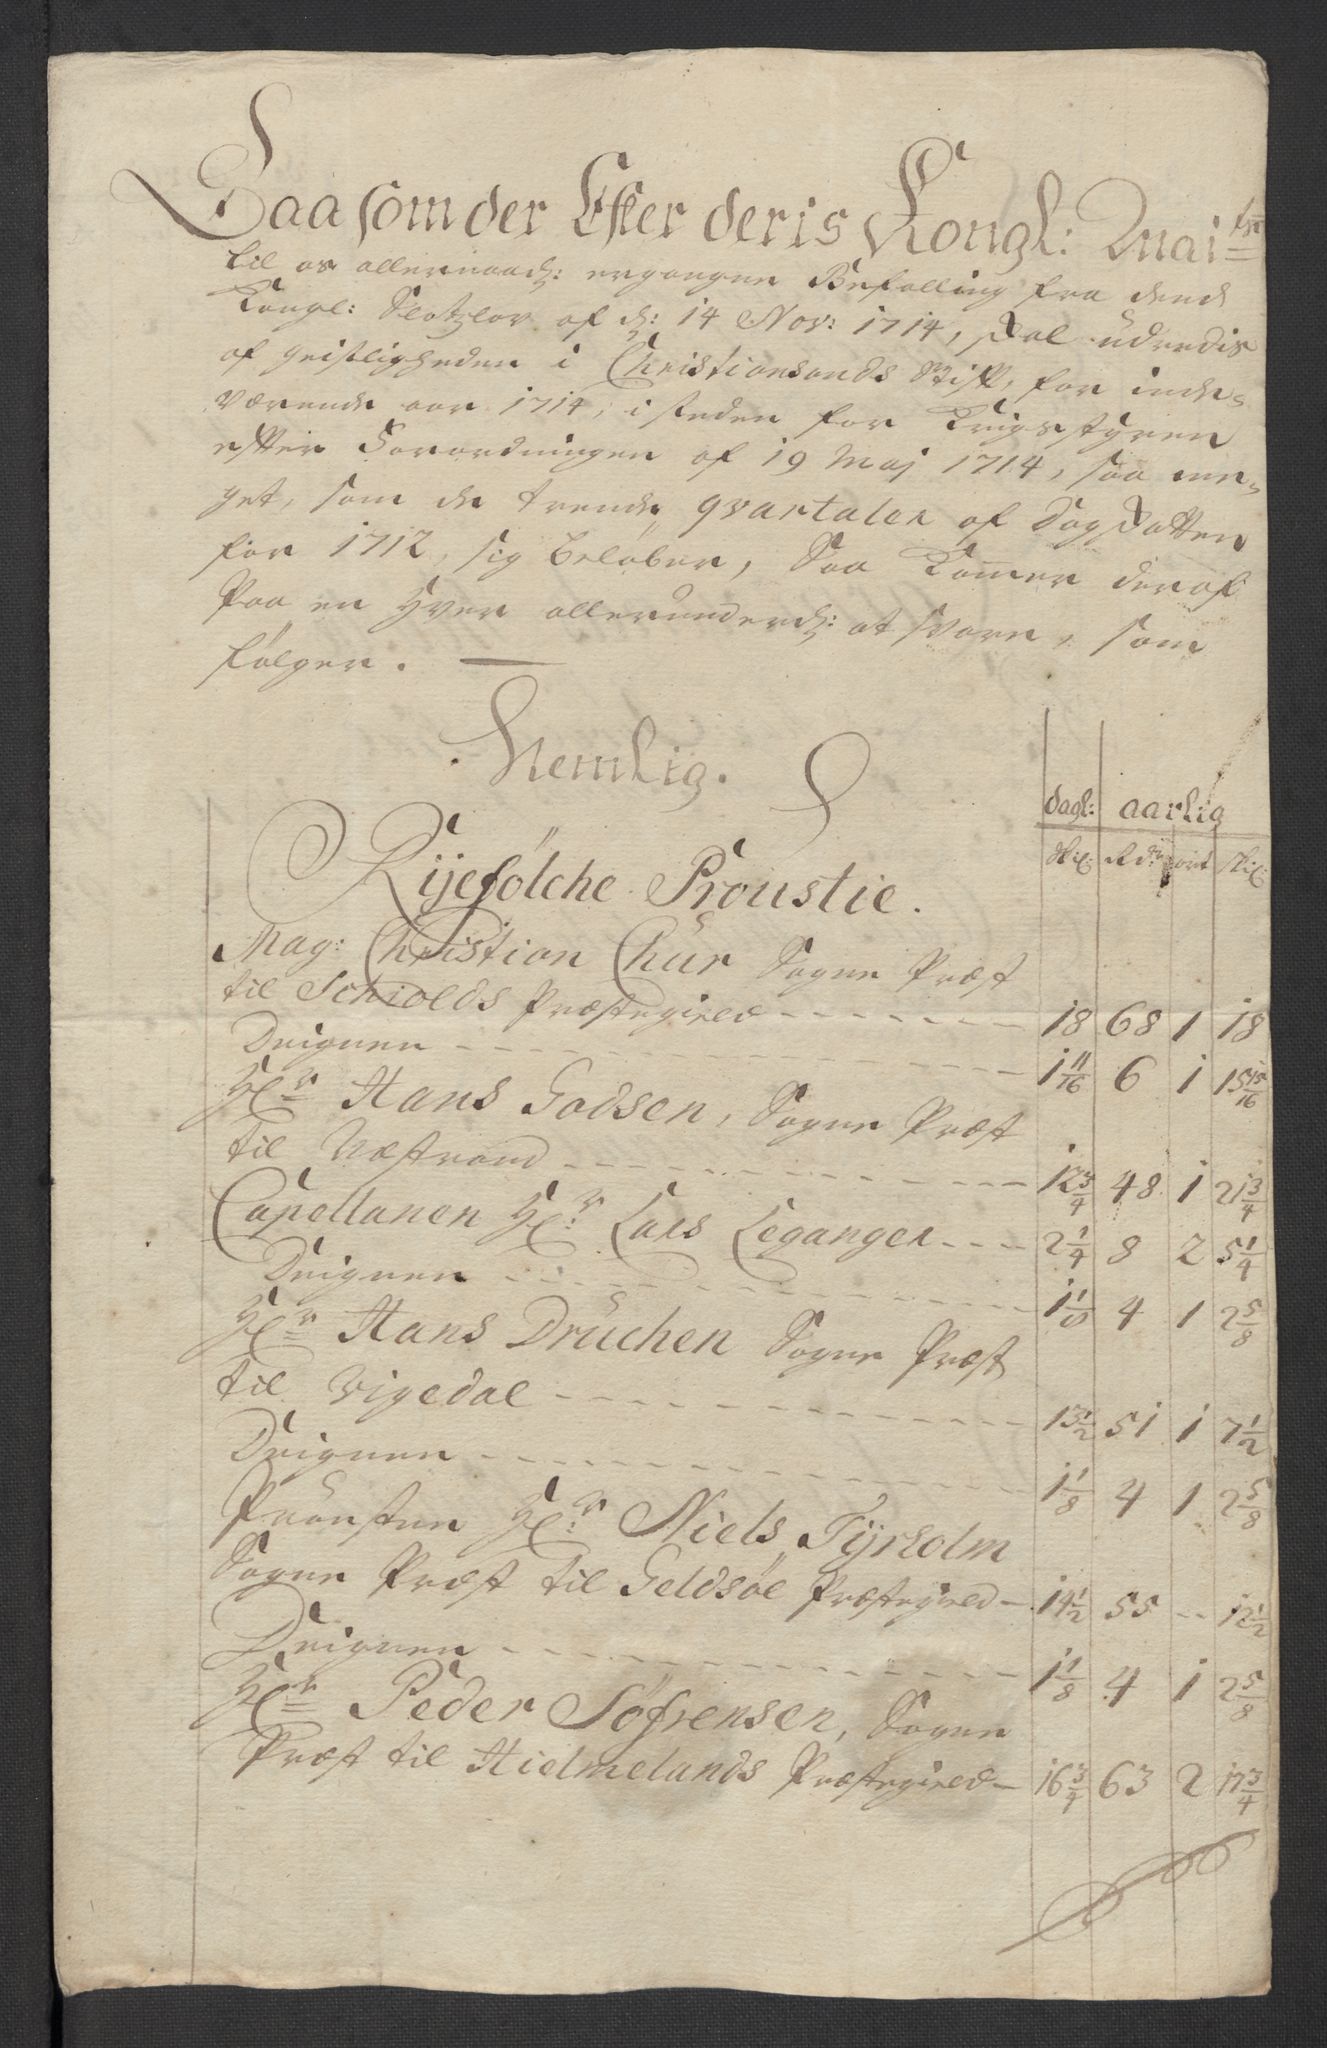 Saasom der Efter deris Kongl: Mai:ts
til os allernaads: ergangne Befalling fra dend
Kongl: Slotzlov af d: 14 Nov: 1714, skal udredis
af geistligheden i Christiansands Stift, for inde=
værende aar 1714, i steden for Krigsstyren
efter Forordningen af 19 Maj 1714, saa me=
get, som de trende qvartaler af Dagskatten
for 1712, sig beløber, Saa Komer deraf
Paa en hver allerunderd: at svare, som
følger.
Nemlig.
dagl: aarlig
skil: Rdr ort skil:
Ryefölche Proustie.
Mag: Christian Chur Sogne Præst
til Schiolds Præstegield 18 68 1 18
Deignen 1 11/16 6 1 15 15/16
Hr Hans Godsen, Sogne Præst
til Næstrand 12 3/4 48 1 21 3/4
Capellanen Hr: Lars Leganger 2 1/4 8 2 5 1/4
Deignen 1 1/8 4 1 2 5/8
Hr Hans Druchen Sogne Præst
til Vigedal 13 1/2 51 1 7 1/2
Deignen 1 1/8 4 1 2 5/8
Prousten Hr: Niels Tyrholm
Sogne Præst til Geldsøe Præstegield 14 1/2 55 -- 12 1/2
Deignen 1 1/8 4 1 2 5/8
Hr Peder Söfrensen, Sogne
Præst til Hielmelands Præstegield 16 3/4 63 2 17 3/4